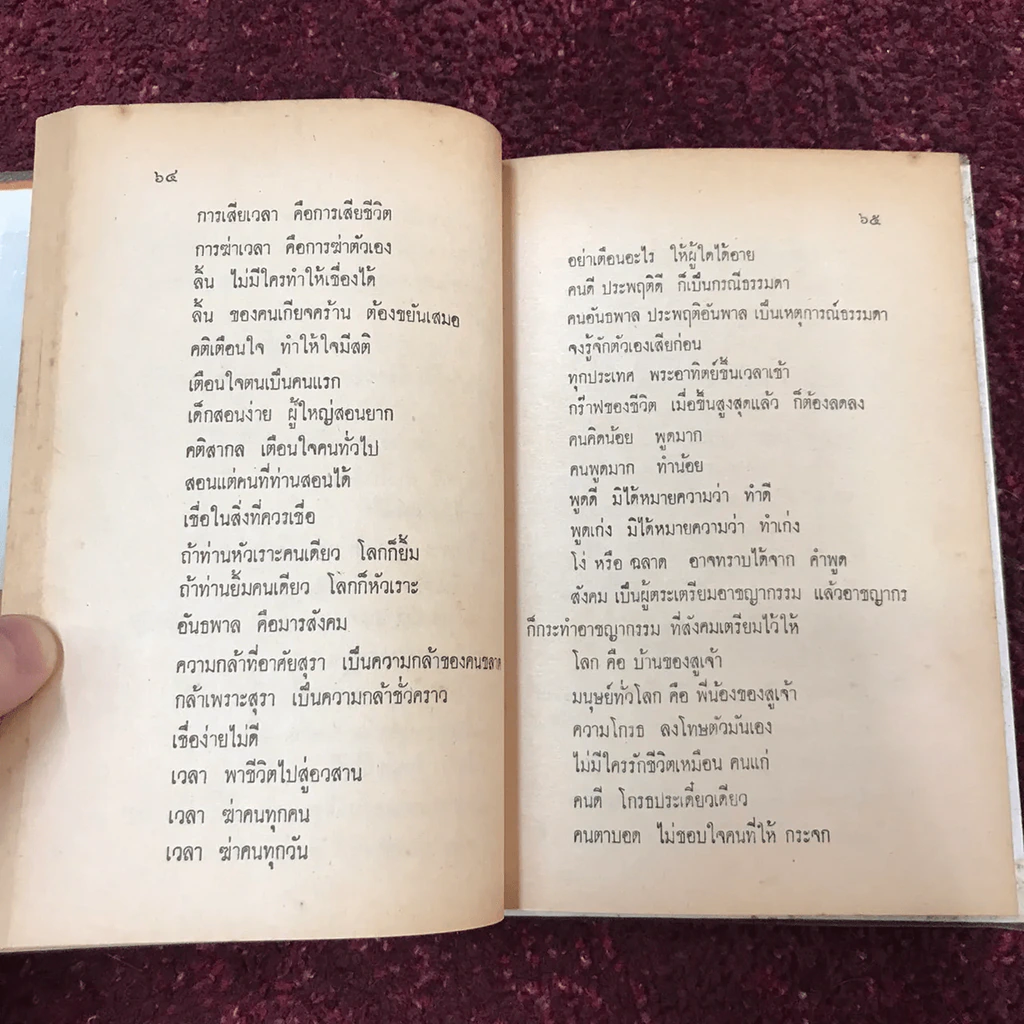 ๖๔
การเสียเวลา คือการเสียชีวิต
การฆ่าเวลา คือการฆ่าตัวเอง
ลิ้น ไม่มีใครทำให้เชื่องได้
ลิ้น ของคนเกียจคร้าน ต้องขยันเสมอ
คติเตือนใจ ทำให้ใจมีสติ
เตือนใจตนเป็นคนแรก
เด็กสอนง่าย ผู้ใหญ่สอนยาก
คติสากล เตือนใจคนทั่วไป
สอนแต่คนที่ท่านสอนได้
เชื่อในสิ่งที่ควรเชื่อ
ถ้าท่านหัวเราะคนเดียว โลกก็ยิ้ม
ถ้าท่านยิ้มคนเดียว โลกก็หัวเราะ
อันธพาล คือมารสังคม
ความกล้าที่อาศัยสุรา เป็นความกล้าของคนขลาด
กล้าเพราะสุรา เป็นความกล้าชั่วคราว
เชื่อง่ายไม่ดี
เวลา พาชีวิตไปสู่อวสาน
เวลา ฆ่าคนทุกคน
เวลา ฆ่าคนทุกวัน
๖๕
อย่าเตือนอะไร ให้ผู้ใดได้อาย
คนดี ประพฤติดี ก็เป็นกรณีธรรมดา
คนอันธพาล ประพฤติอันพาล เป็นเหตุการณ์ธรรมดา
จงรู้จักตัวเองเสียก่อน
ทุกประเทศ พระอาทิตย์ขึ้นเวลาเช้า
กร๊าฟของชีวิต เมื่อขึ้นสูงสุดแล้ว ก็ต้องลดลง
คนคิดน้อย พูดมาก
คนพูดมาก ทำน้อย
พูดดี มิได้หมายความว่า ทำดี
พูดเก่ง มิได้หมายความว่า ทำเก่ง
โง่ หรือ ฉลาด อาจทราบได้จาก คำพูด
สังคม เป็นผู้ตระเตรียมอาชญากรรม แล้วอาชญากร
ก็กระทำอาชญากรรม ที่สังคมเตรียมไว้ให้
โลก คือ บ้านของสูเจ้า
มนุษย์ทั่วโลก คือ พี่น้องของสูเจ้า
ความโกรธ ลงโทษตัวมันเอง
ไม่มีใครรักชีวิตเหมือน คนแก่
คนดี โกรธประเดี๋ยวเดียว
คนตาบอด ไม่ชอบใจคนที่ให้ กระจก